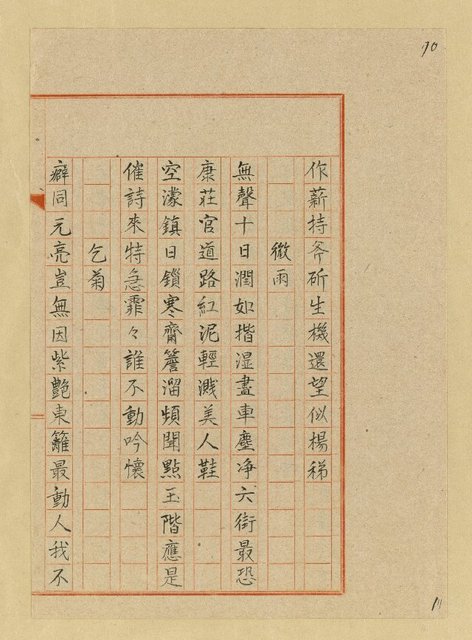 作薪持斧斫生機還望似楊稊
微雨
無聲十日潤如揩湿盡車塵净六街最恐
康莊官道路紅泥輕濺美人鞋
空濛鎮日鎖寒齋簷溜頻聞點玉階應是
催詩來特急霏々誰不動吟懷
乞菊
癖同元亮豈無因紫艷東籬最動人我不
70